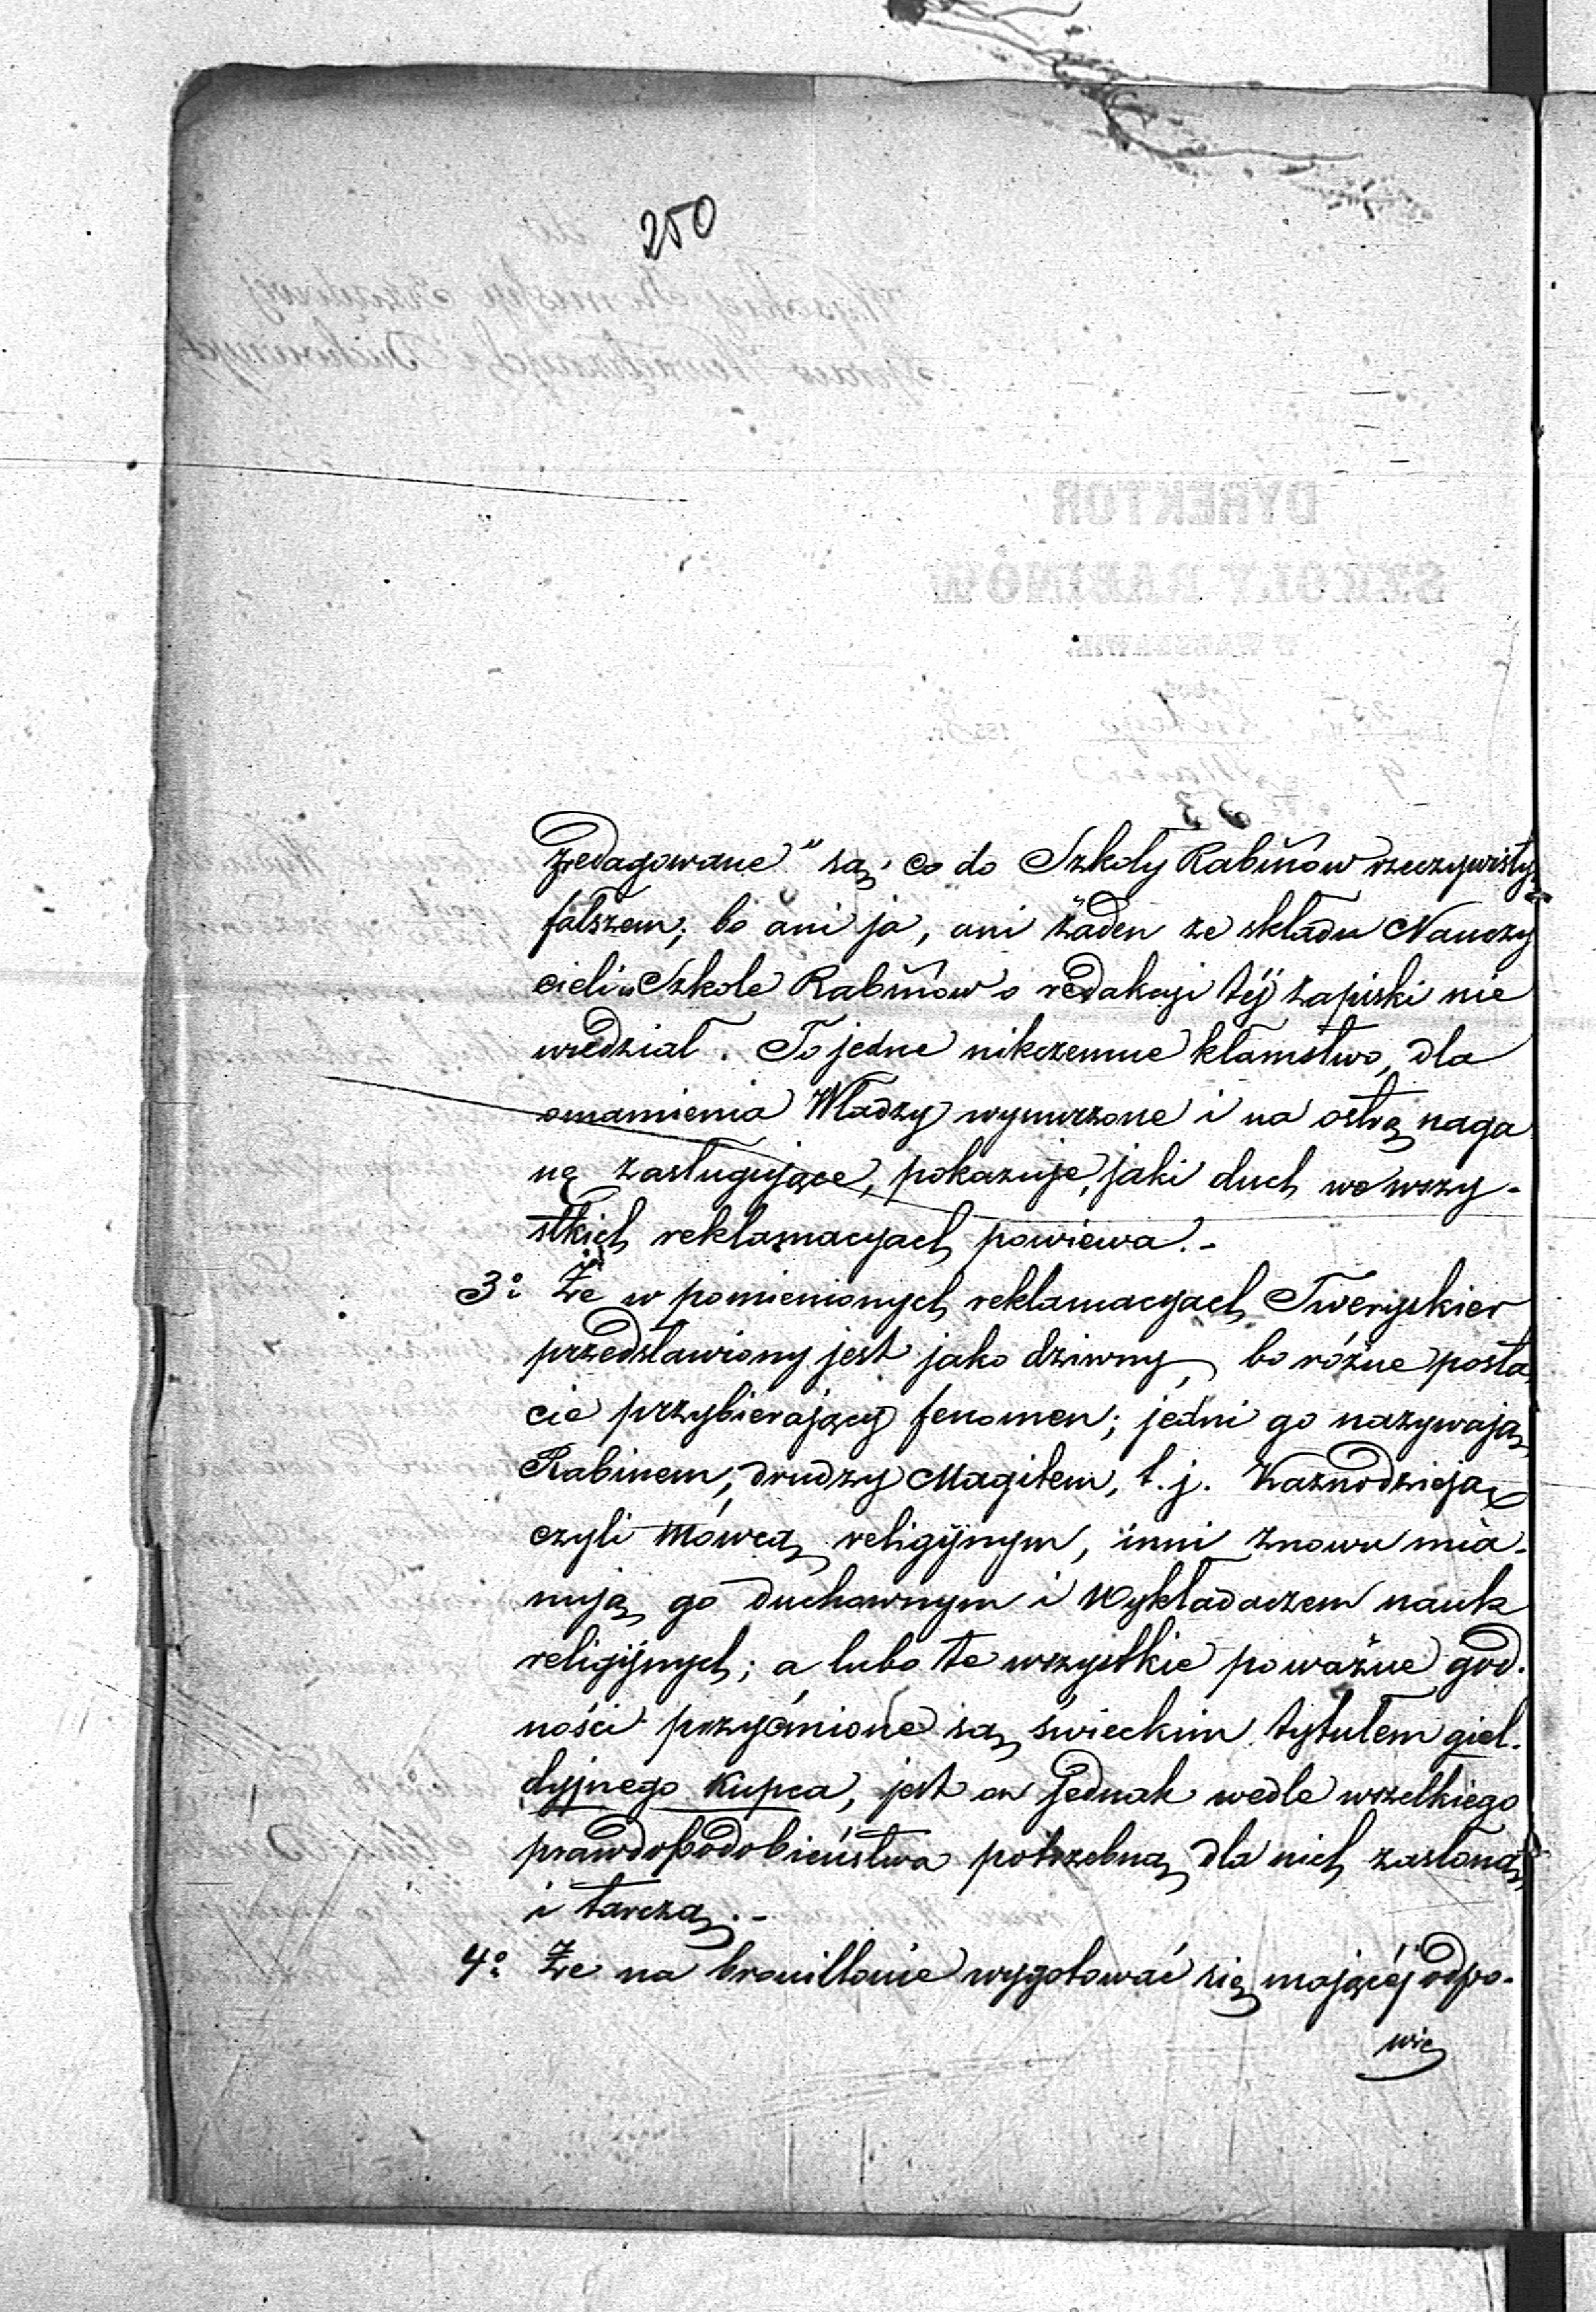 250
zredagowane" są, co do Szkoły Rabinów rzeczywisty
fałszem; bo ani ja, ani żaden ze składu Nauczy
cieli w Szkole Rabinów o redakcji téj zapiski nie
wiedział. To jedne nikczemne kłamstwo, dla
omamienia Władzy wynurzone i na ostrą naga
nę zasługujące, pokazuje, jaki duch we wszy-
stkich reklamacyach powiewa.-
3o Że w pomienionych reklamacyach Tweryskier
przedstawiony jest jako dziwny, bo różne posta
cie przybierający fenomen; jedni go nazywają
Rabinem, drudzy Magitem, t. j. Kaznodzieją
czyli mówcą religijnym, inni znowu mia-
nują go duchownym i Wykładaczem nauk
religijnych; a lubo te wszystkie poważne god-
ności przyćmione są świeckim tytułem giel-
dyjnego Kupca, jest on jednak wedle wszelkiego
prawdopodobieństwa potrzebną dla nich zasłoną
i tarczą.-
4o Że na brouillonie wygotować się mającéj odpo-
wie
DYREKTOR
SZKOŁY RABINÓW
W WARSZAWIE.